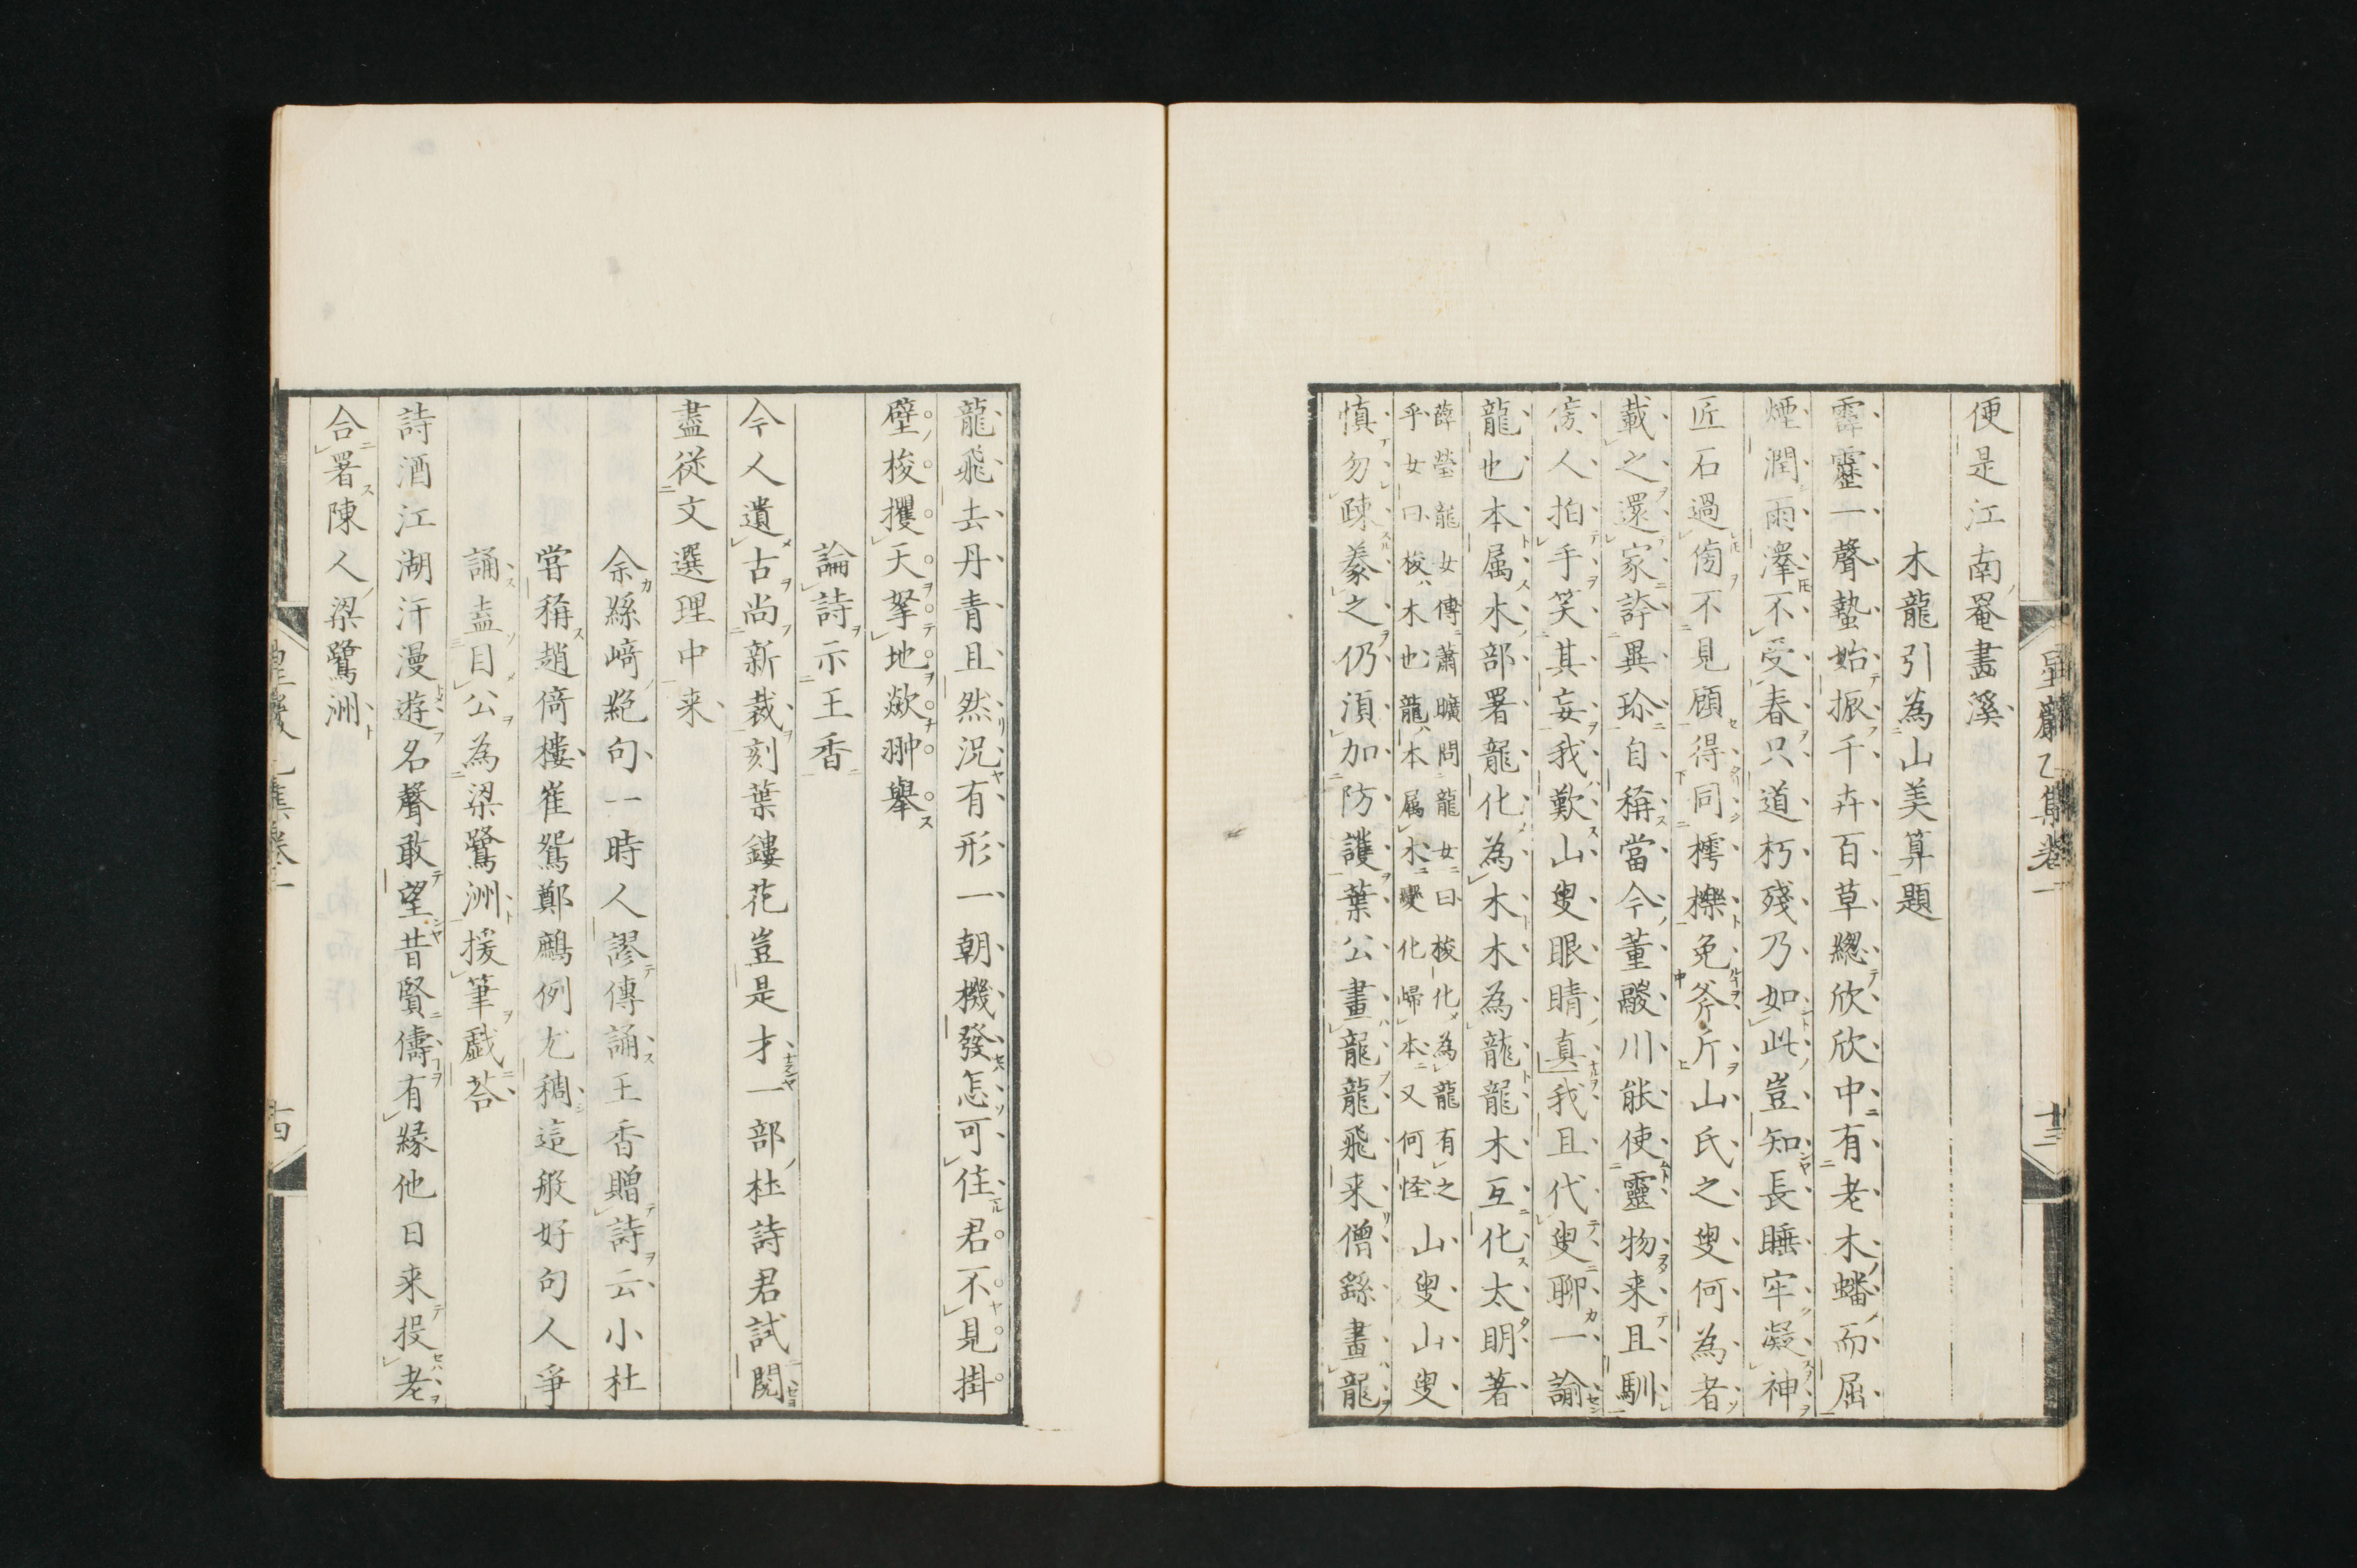 便是江南罨畫溪
木龍引為山美算題
霹靂一聲蟄始振千卉百草總欣欣中有老木蟠而屈
煙潤雨澤不受春只道朽殘乃如此豈知長睡牢凝神
匠石過傍不見顧得同樗櫟免斧斤山氏之叟何為者
載之還家誇異珍自稱當今董駿川能使靈物来且馴
傍人拍手笑其妄我歎山叟眼睛真我且代叟聊一諭
龍也本属木部署龍化為木木為龍龍木互化太明著
薛瑩龍女傳蕭曠問龍女曰梭化為龍有之
乎女曰梭木也龍本属木變化歸本又何怪
山叟山叟
慎勿疎豢之仍須加防護葉公畫龍龍飛来僧繇畫龍
龍飛去丹青且然況有形一朝機發怎可住君不見掛
壁梭攫天拏地歘翀舉
論詩示王香
今人遺古尚新裁刻葉鏤花豈是才一部杜詩君試閲
盡從文選理中来
余緜﨑絶句一時人謬傳誦王香贈詩云小杜
嘗稱趙倚樓崔鴛鄭鷓例尤稠這般好句人爭
誦盍目公為梁鷺洲援筆戯荅
詩酒江湖汗漫遊名聲敢望昔賢儔有縁他日来投老
合署陳人梁鷺洲
星巖乙集卷一
十三
十四